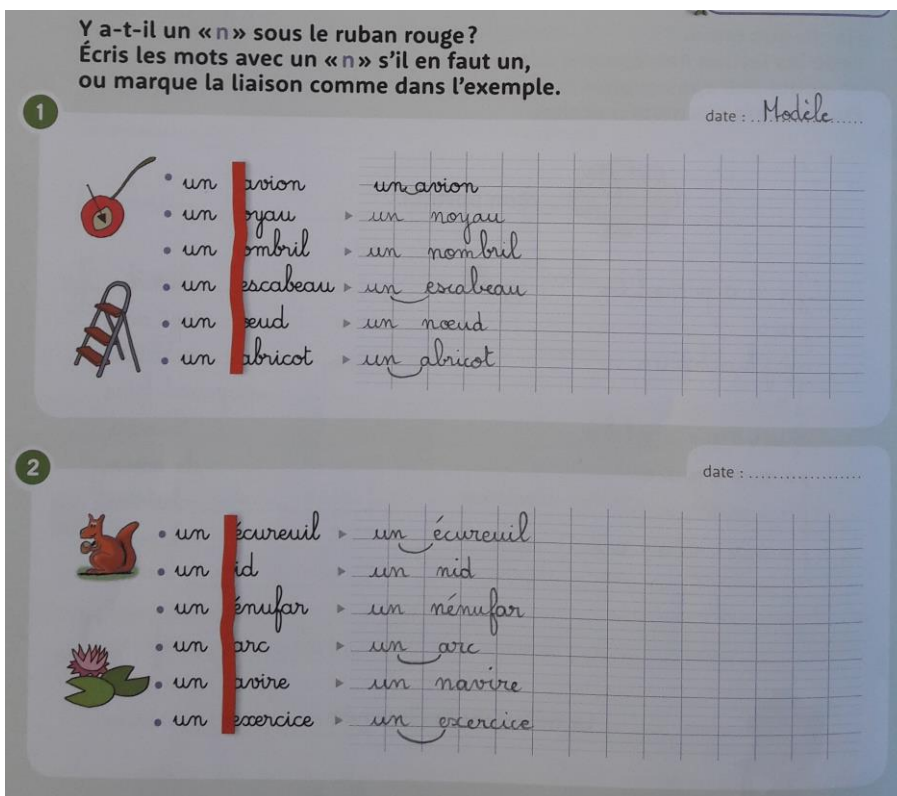 Y a-t-il un «n» sous le ruban rouge?
Écris les mots avec un «n» s'il en faut un,
ou marque la liaison comme dans l'exemple.
1
date : ..Modèle.....
• un avion un avion
• un oyau ▸ un noyau
• un ombril ▸ un nombril
• un escabeau ▸ un escabeau
• un œud ▸ un nœud
• un abricot ▸ un abricot
2
date : ...................
• un écureuil ▸ un écureuil
• un id ▸ un nid
• un énufar ▸ un nénufar
• un arc ▸ un arc
• un avire ▸ un navire
• un exercice ▸ un exercice